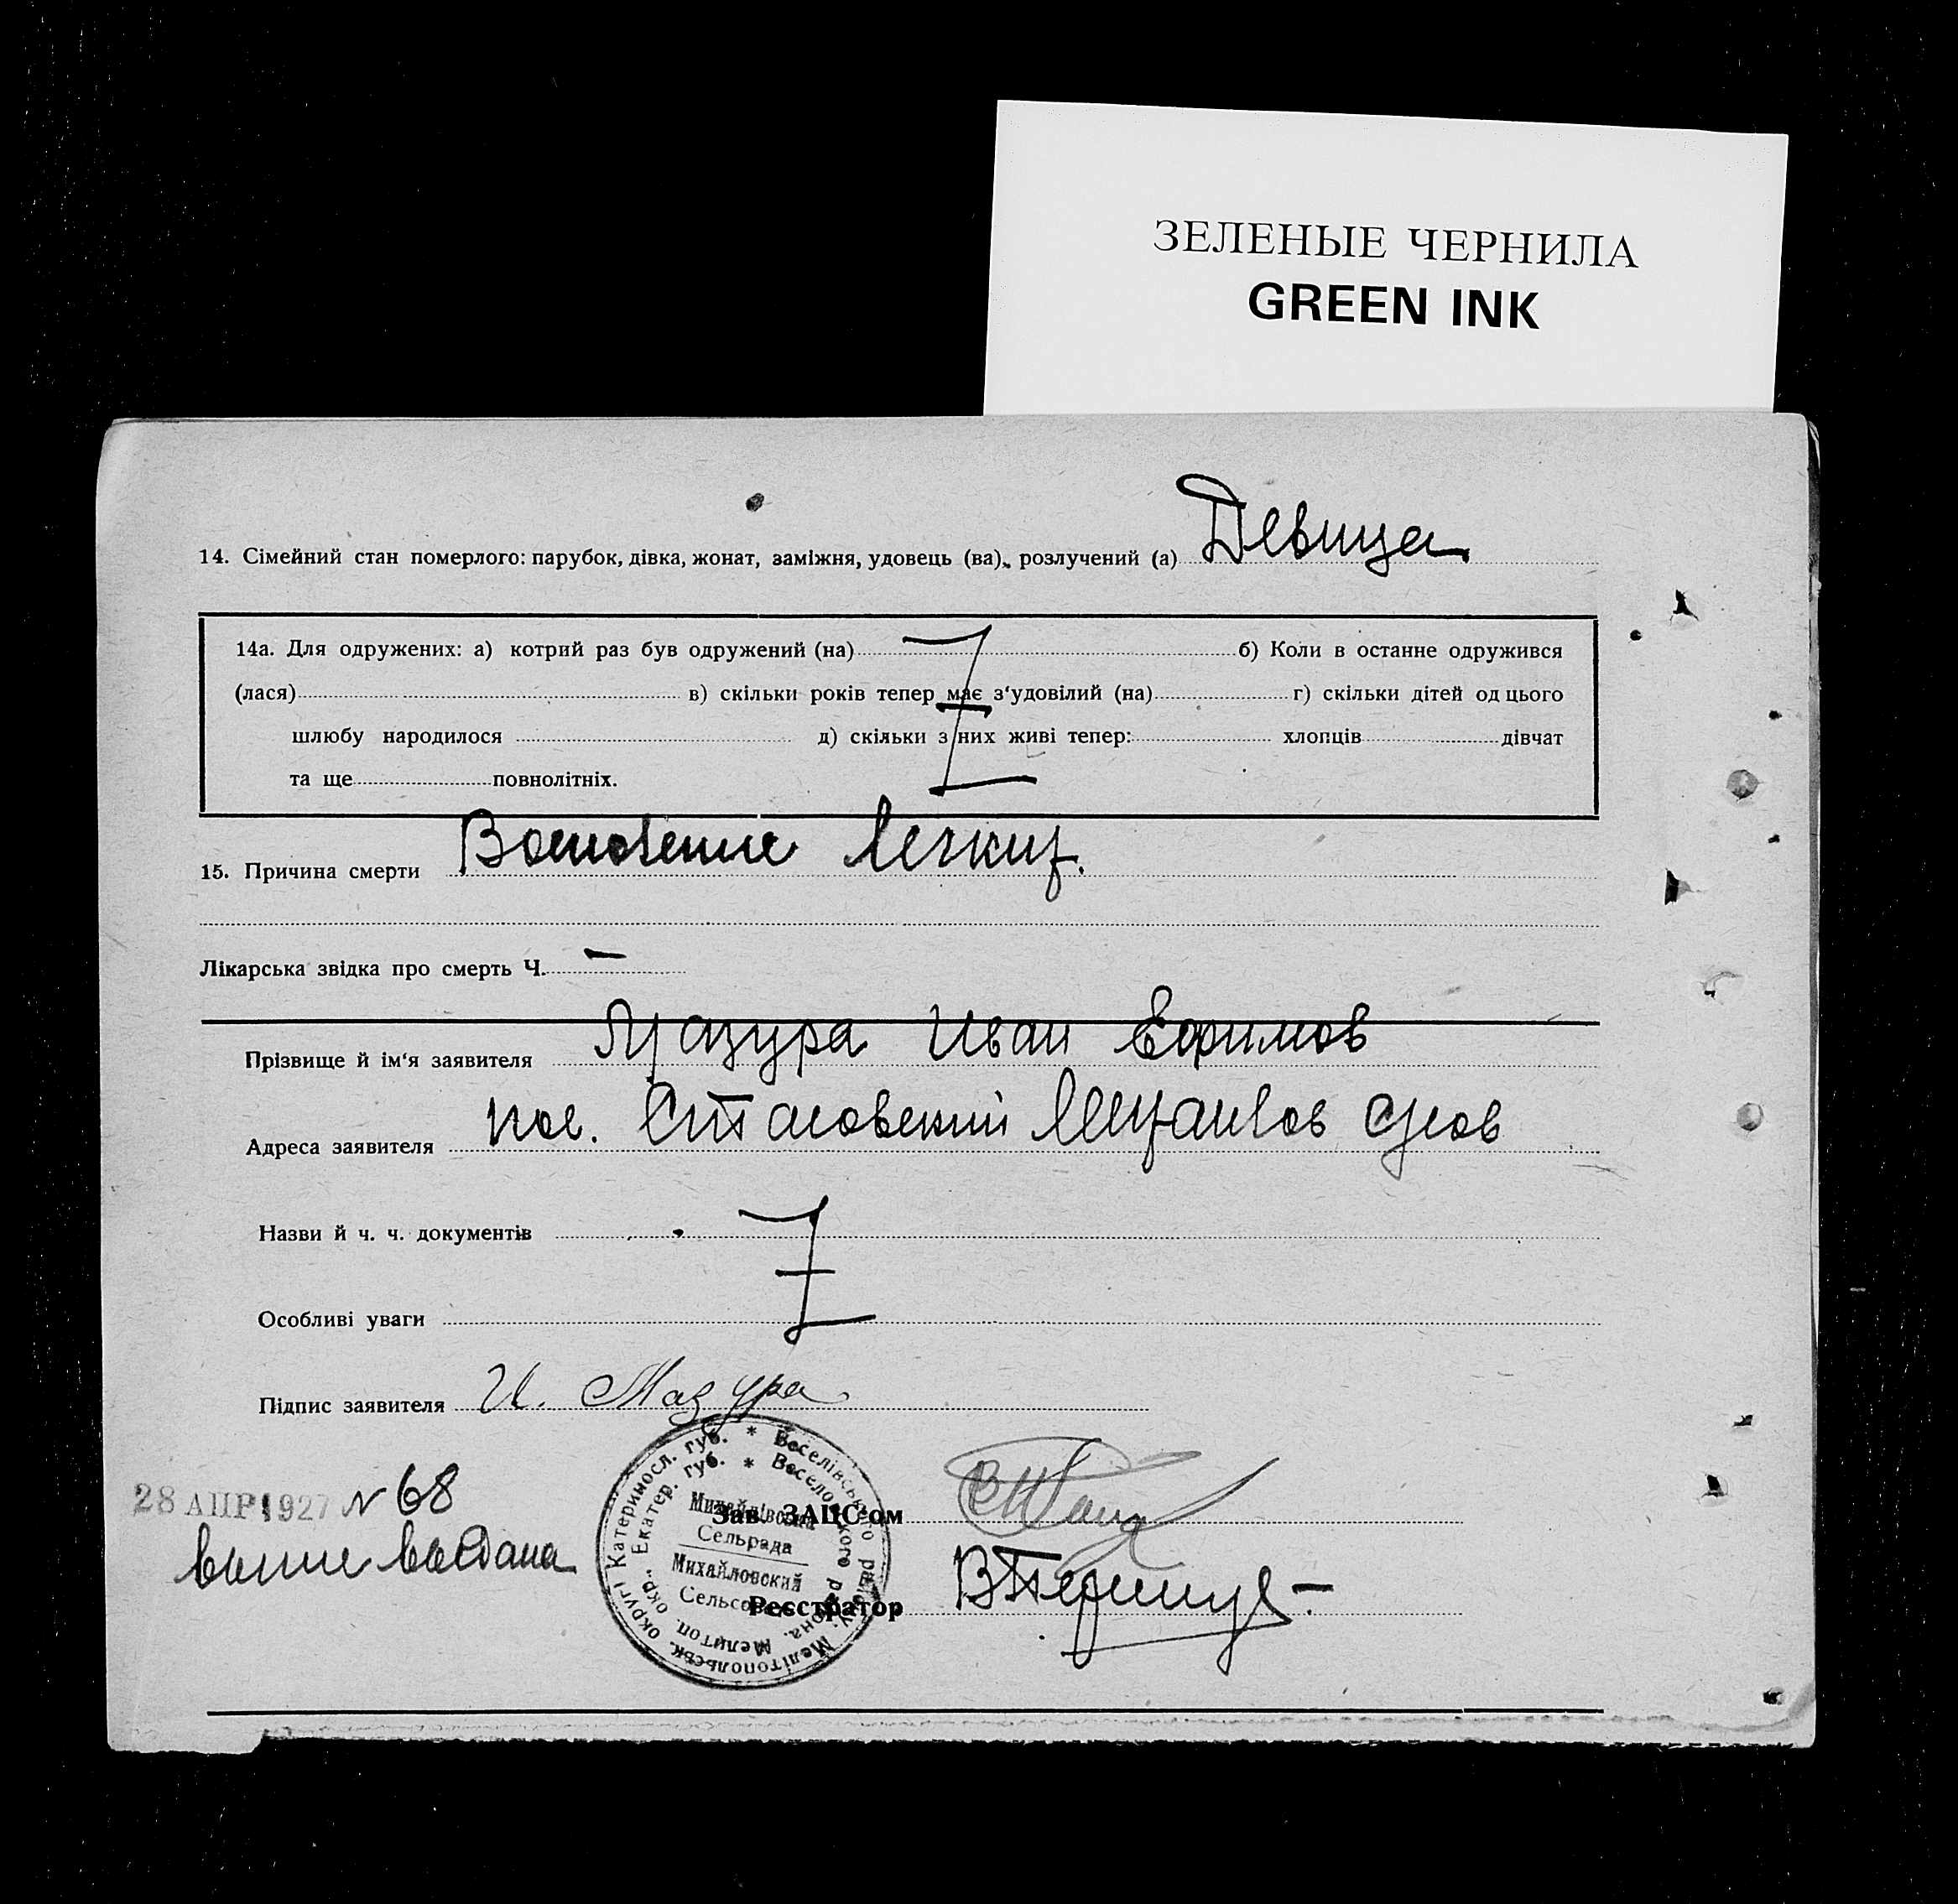 ЗЕЛЕНЫЕ ЧЕРНИЛА
GREEN INK
14. Сімейний стан померлого: парубок, дівка, жонат, заміжня, удовець (ва), розлучений (а) Девица
14а. Для одружених: а) котрий раз був одружений (на) б) Коли в останне одружився
(лася) в) скільки років тепер має з'удовілий (на) г) скільки дітей од цього
шлюбу народилося д) скільки з них живі тепер: хлопців дівчат
та ще повнолітніх.
15. Причина смерти Воспаление Легких.
Лікарська звідка про смерть Ч. —
Прізвище й ім'я заявителя Мазура Иван Ефимов
Адреса заявителя пос.
Назви й ч. ч. документів
Особливі уваги
Підпис заявителя И. Мазура
28 АПР 1927 N 68
Зав. ЗАЦС'ом
выпись выдана
Реєстратор
Катериносл. губ. * Веселівського району, Мелітопольськ. округі
Екатер. губ. * Веселовского района. Мелитоп. окр.
Михайлівська
Сельрада
Михайловский
Сельсовет